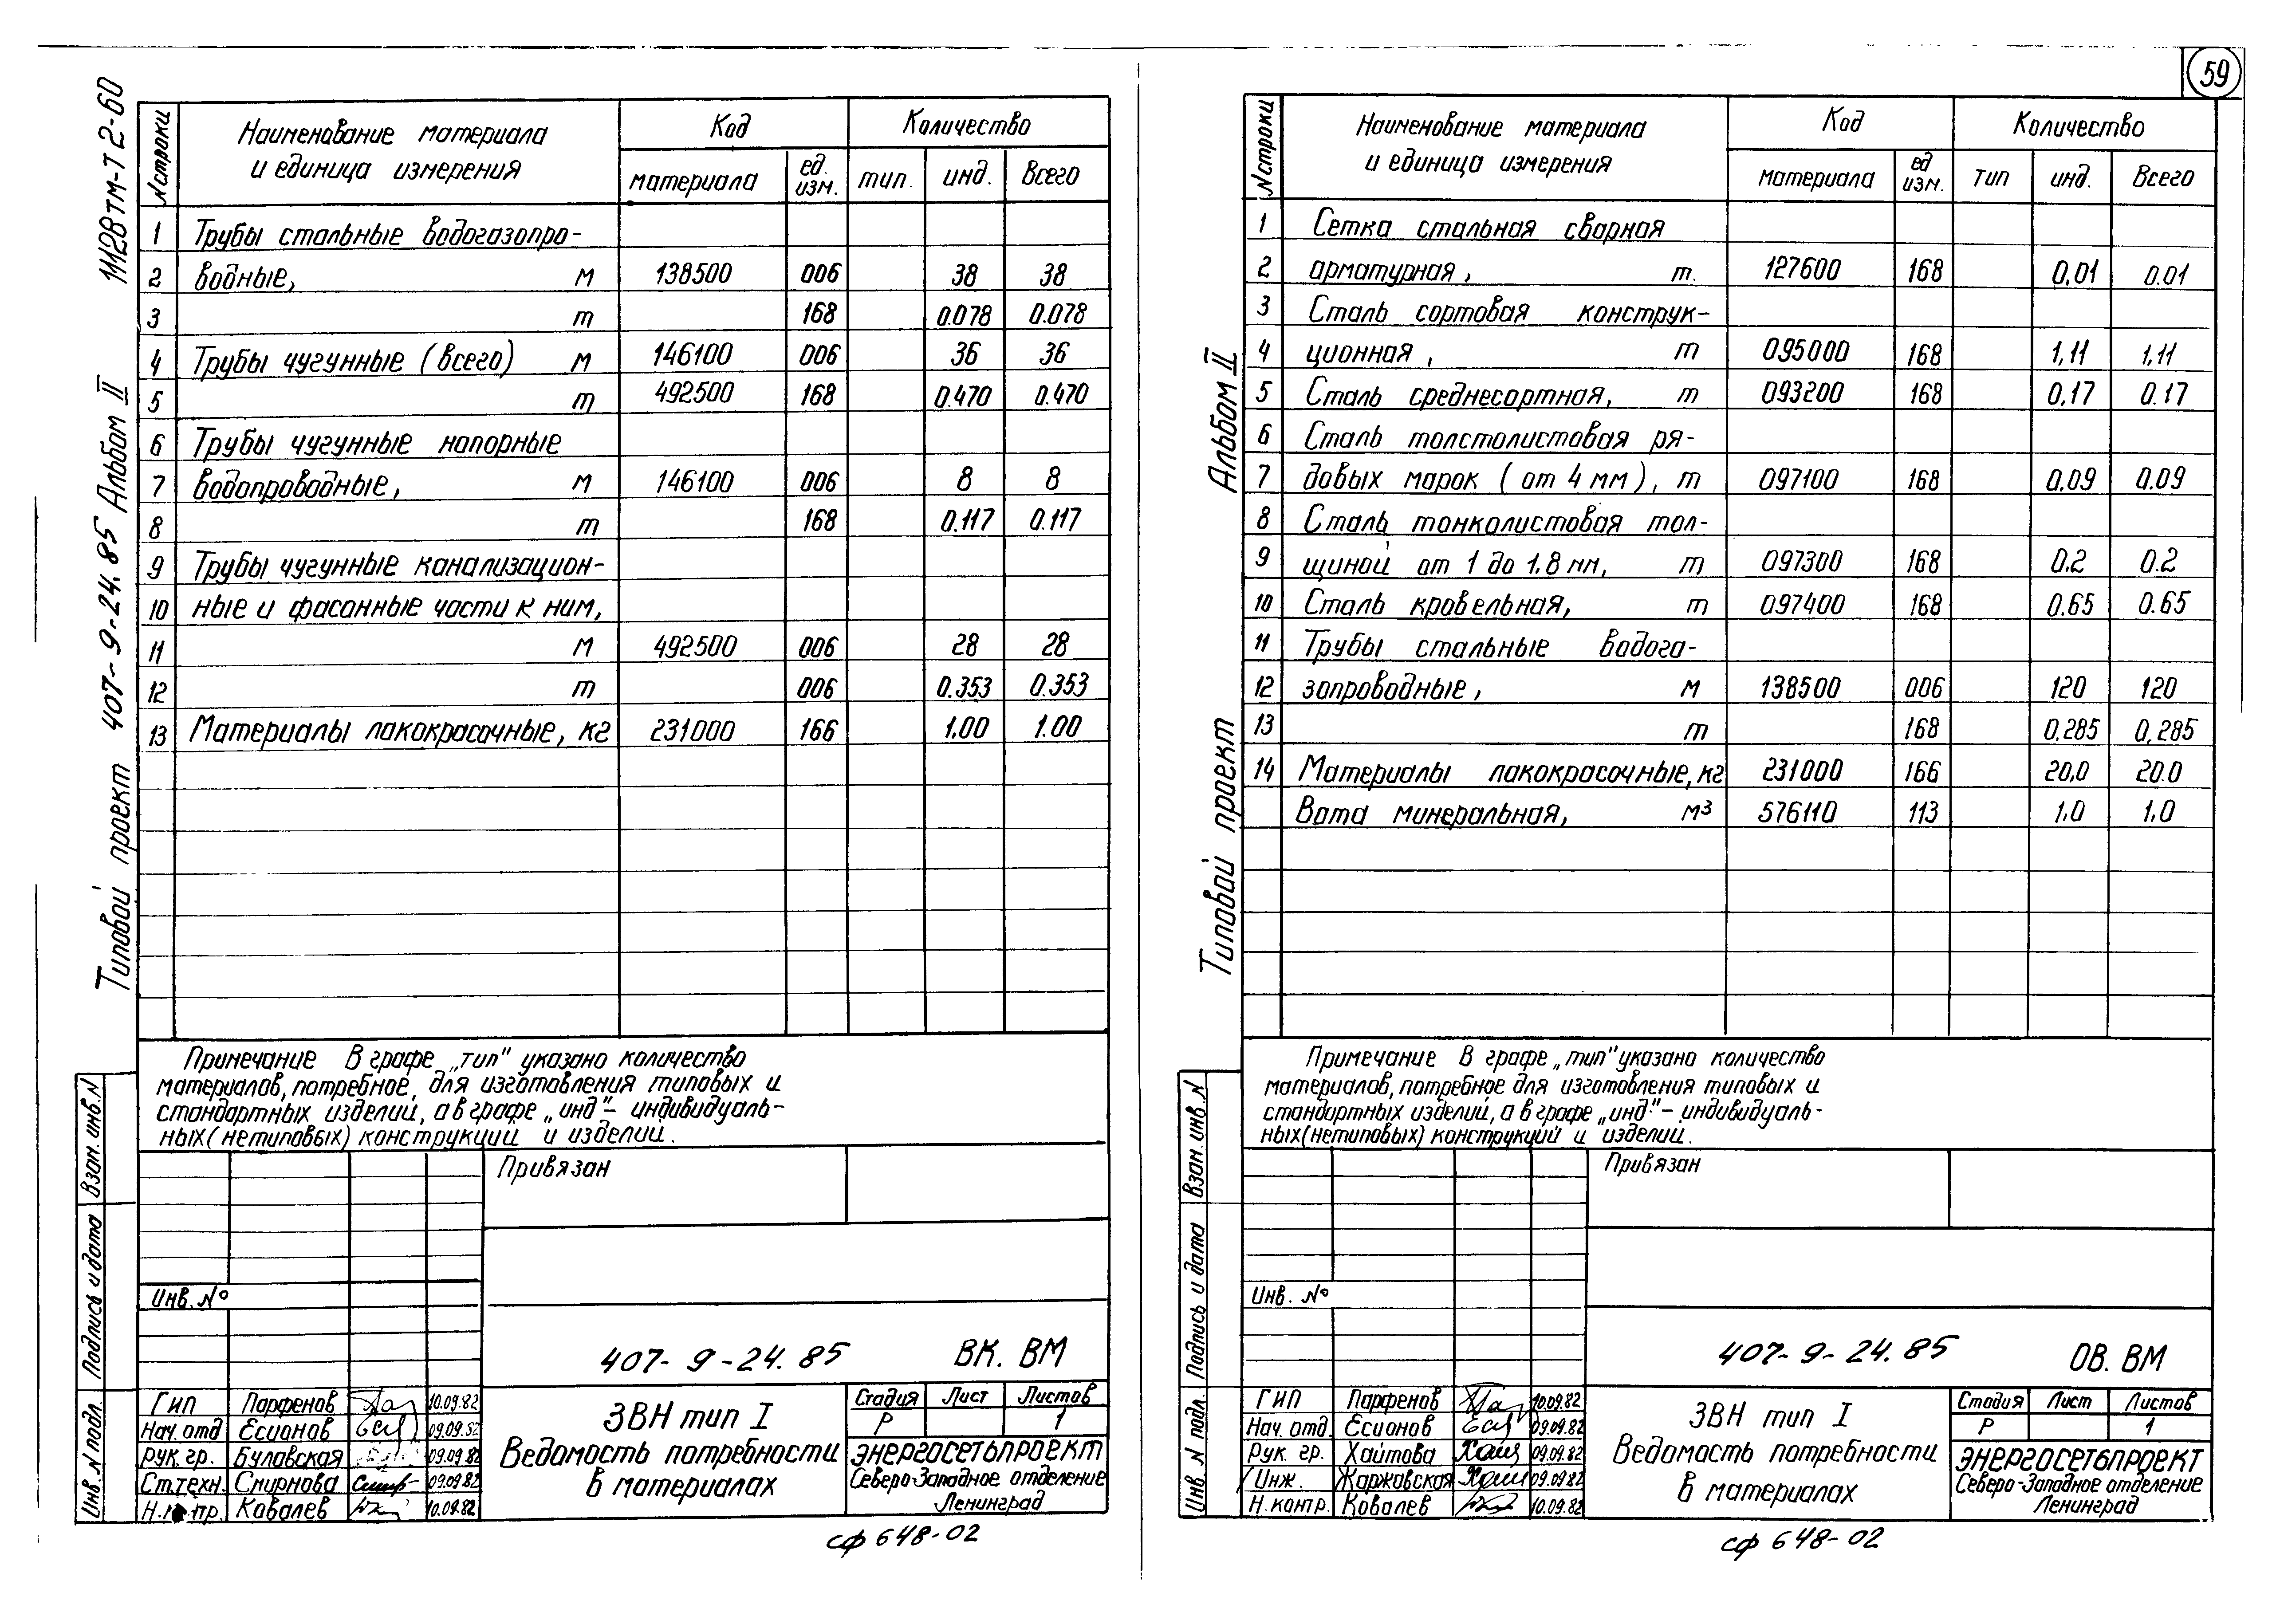 59
11128тм-т2-60
Типовой проект 407-9-24.85 Альбом II
N строки | Наименование материала и единица измерения | Код | Количество
материала | ед. изм. | тип. | инд. | Всего
1 Трубы стальные водогазопро-
2 водные, м 138500 006 38 38
3 т 168 0.078 0.078
4 Трубы чугунные (всего) м 146100 006 36 36
5 т 492500 168 0.470 0.470
6 Трубы чугунные напорные
7 водопроводные, м 146100 006 8 8
8 т 168 0.117 0.117
9 Трубы чугунные канализацион-
10 ные и фасонные части к ним,
11 м 492500 006 28 28
12 т 006 0.353 0.353
13 Материалы лакокрасочные, кг 231000 166 1.00 1.00
Примечание В графе „тип" указано количество
материалов, потребное для изготовления типовых и
стандартных изделий, а в графе „инд"- индивидуаль-
ных (нетиповых) конструкций и изделий.
Взам. инв. N
Подпись и дата
Инв. N подл.
Привязан
Инв. №
407-9-24.85 ВК. ВМ
ГИП Парфенов 10.09.82
Нач. отд Есионов 09.09.82
Рук. гр. Булавская 09.09.82
Ст.техн. Смирнова 09.09.82
Н.к пр. Ковалев 10.09.82
ЗВН тип I
Ведомость потребности
в материалах
Стадия Лист Листов
Р 1
ЭНЕРГОСЕТЬПРОЕКТ
Северо-Западное отделение
Ленинград
сф 648-02
Типовой проект Альбом II
N строки | Наименование материала и единица измерения | Код | Количество
материала | ед изм. | тип | инд. | Всего
1 Сетка стальная сварная
2 арматурная, т. 127600 168 0,01 0.01
3 Сталь сортовая конструк-
4 ционная, т 095000 168 1,11 1,11
5 Сталь среднесортная, т 093200 168 0,17 0.17
6 Сталь толстолистовая ря-
7 довых марок (от 4 мм), т 097100 168 0,09 0.09
8 Сталь тонколистовая тол-
9 щиной от 1 до 1.8 мм, т 097300 168 0,2 0.2
10 Сталь кровельная, т 097400 168 0.65 0.65
11 Трубы стальные водога-
12 зопроводные, м 138500 006 120 120
13 т 168 0,285 0,285
14 Материалы лакокрасочные, кг 231000 166 20,0 20.0
Вата минеральная, м³ 576110 113 1,0 1,0
Примечание В графе „тип" указано количество
материалов, потребное для изготовления типовых и
стандартных изделий, а в графе „инд"- индивидуаль-
ных (нетиповых) конструкций и изделий.
Взам. инв. N
Подпись и дата
Инв. N подл.
Привязан
Инв. №
407-9-24.85 ОВ. ВМ
ГИП Парфенов 10.09.82
Нач. отд. Есионов 09.09.82
Рук. гр. Хаитова 09.09.82
Инж. Жаржавская 09.09.82
Н. контр. Ковалев 10.09.82
ЗВН тип I
Ведомость потребности
в материалах
Стадия Лист Листов
Р 1
ЭНЕРГОСЕТЬПРОЕКТ
Северо-Западное отделение
Ленинград
сф 648-02